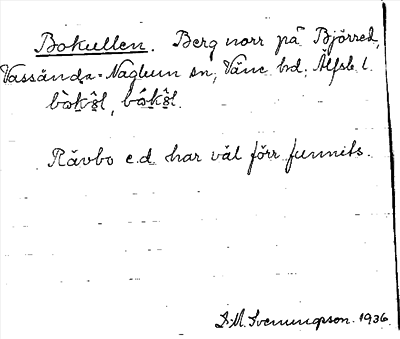 Bokullen. Berg norr på Björred,
Vassända-Naglum sn, Väne hd. Älfsb l.
bòkə̂l, bókə̂l.
Rävbo e.d. har väl förr funnits.
D. M. Svenungsson. 1936